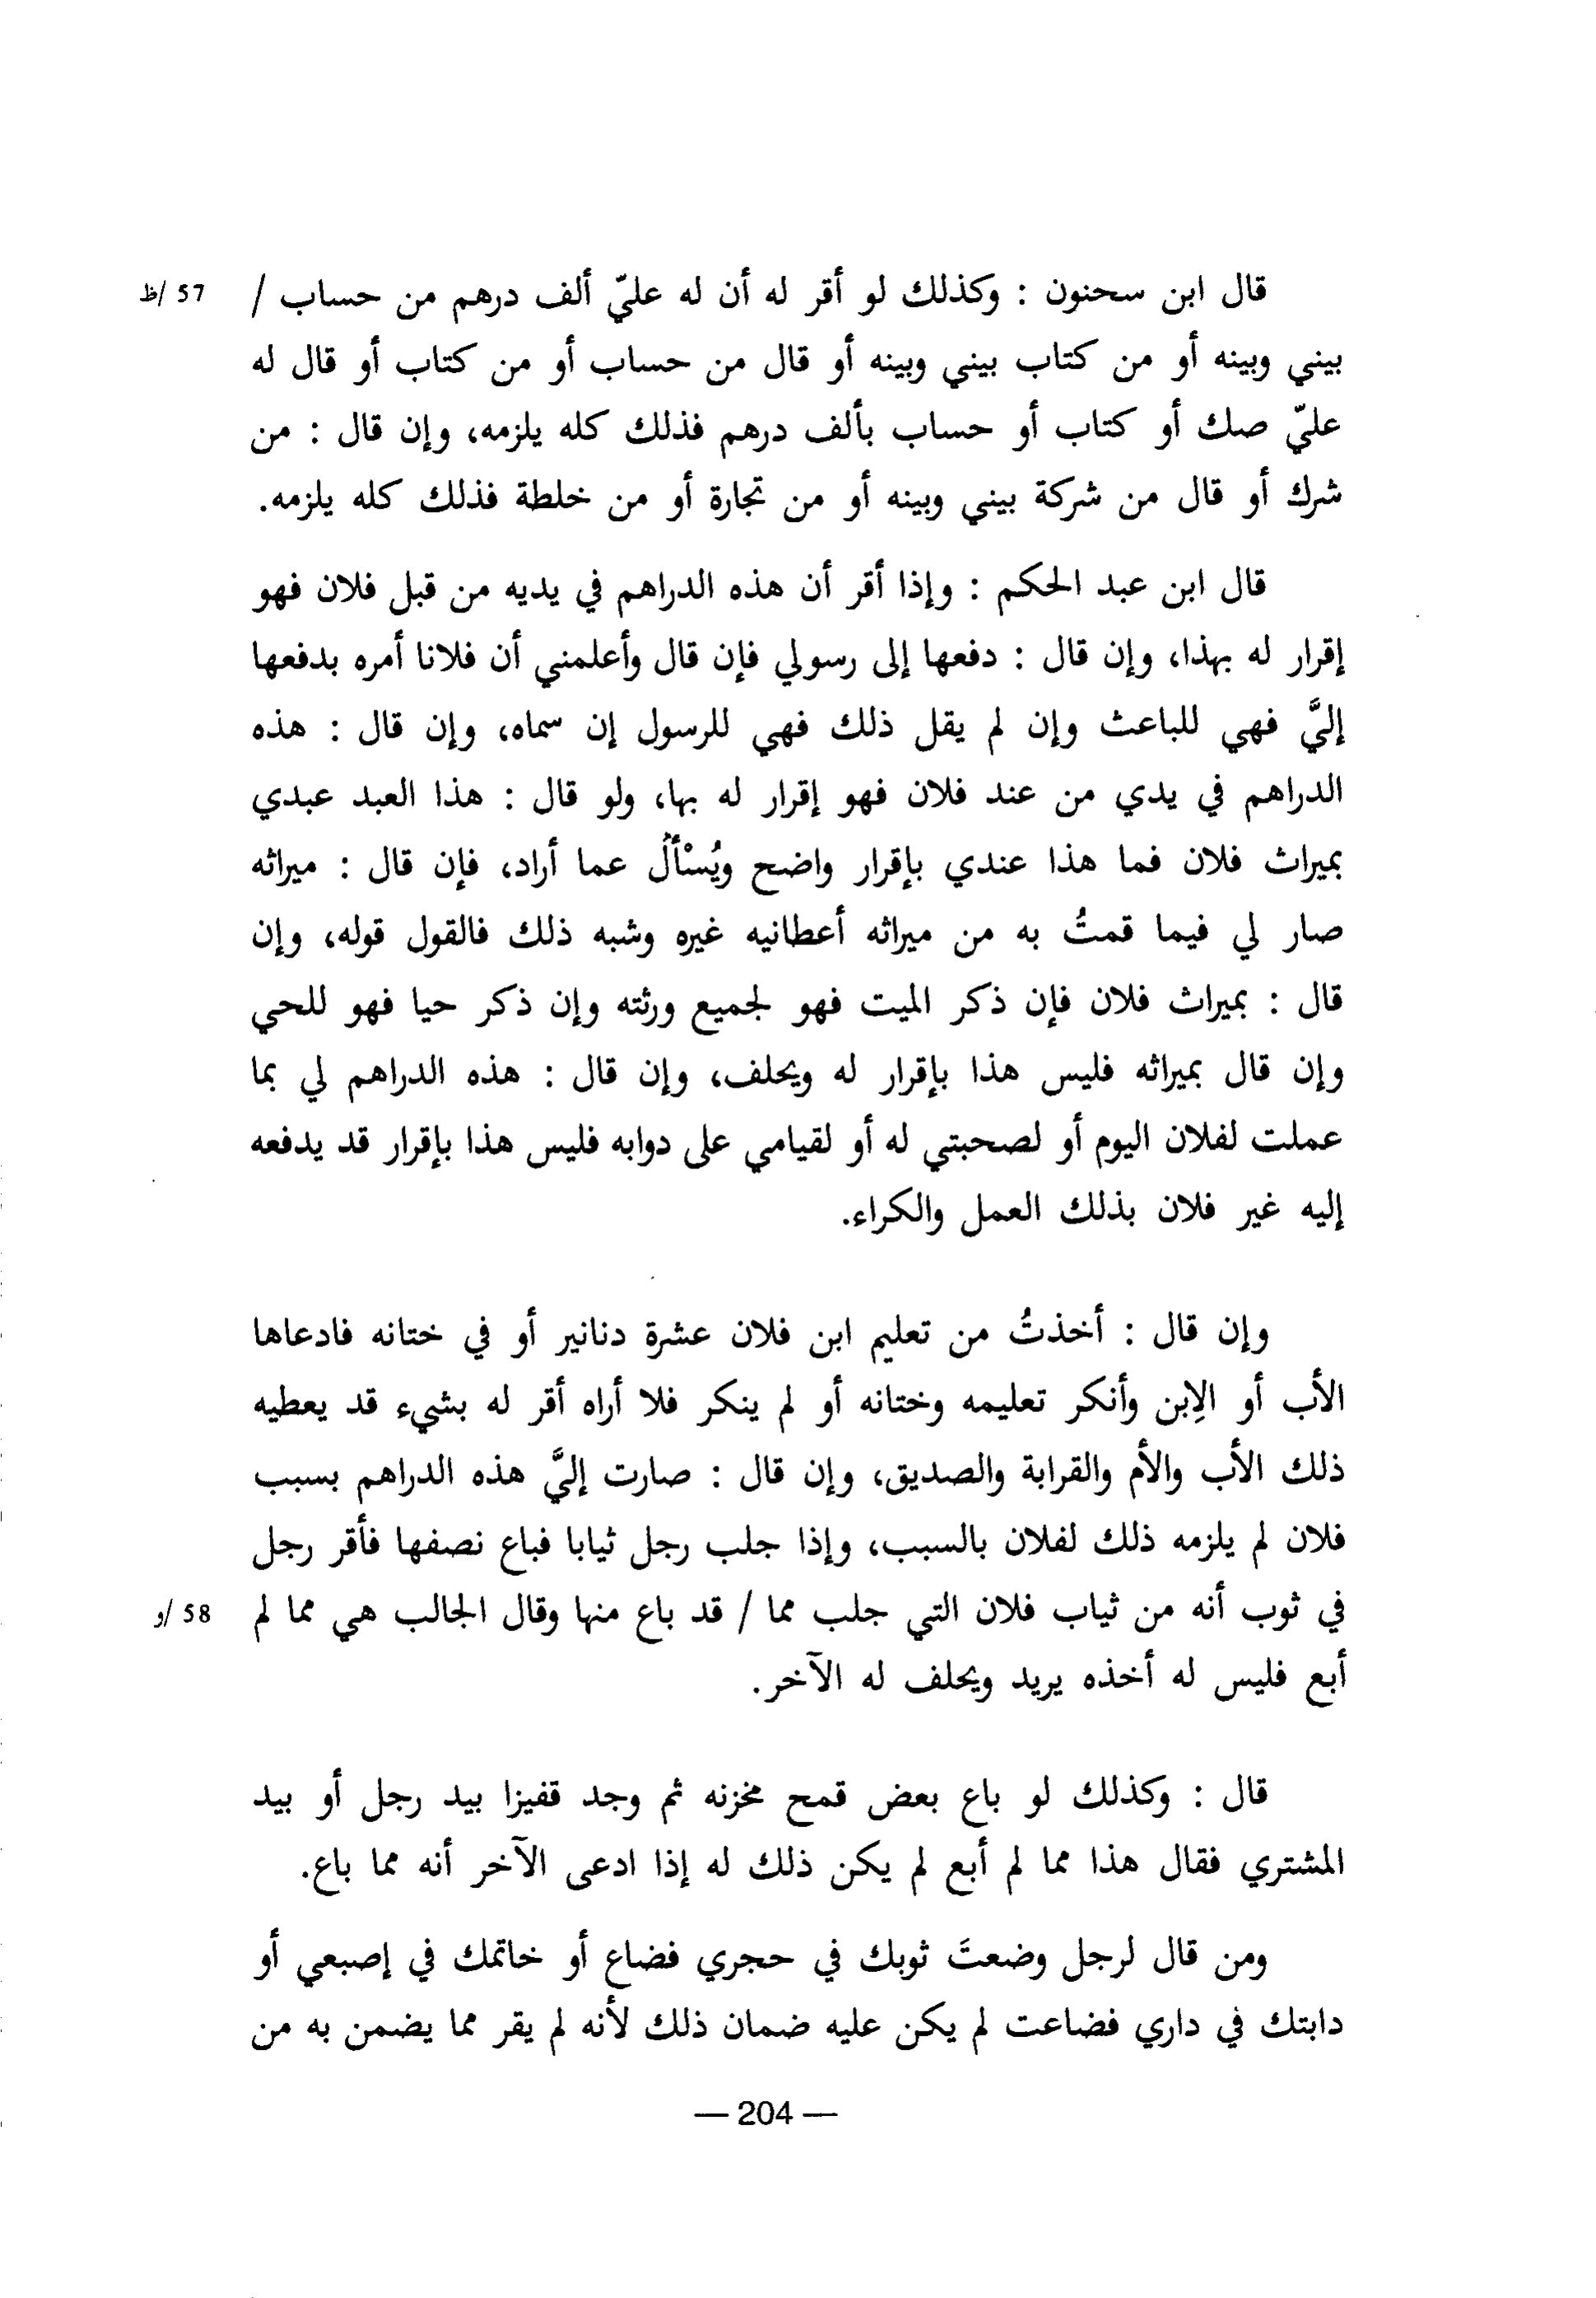 قال ابن سحنون : وكذلك لو أقر له أن له عليّ ألف درهم من حساب / 57 /ظ
بيني وبينه أو من كتاب بيني وبينه أو قال من حساب أو من كتاب أو قال له
عليّ صك أو كتاب أو حساب بألف درهم فذلك كله يلزمه، وإن قال : من
شرك أو قال من شركة بيني وبينه أو من تجارة أو من خلطة فذلك كله يلزمه.
قال ابن عبد الحكم : وإذا أقر أن هذه الدراهم في يديه من قبل فلان فهو
إقرار له بهذا، وإن قال : دفعها إلى رسولي فإن قال وأعلمني أن فلانا أمره بدفعها
إليَّ فهي للباعث وإن لم يقل ذلك فهي للرسول إن سماه، وإن قال : هذه
الدراهم في يدي من عند فلان فهو إقرار له بها، ولو قال : هذا العبد عبدي
بميراث فلان فما هذا عندي بإقرار واضح ويُسْأَلُ عما أراد، فإن قال : ميراثه
صار لي فيما قمتُ به من ميراثه أعطانيه غيره وشبه ذلك فالقول قوله، وإن
قال : بميراث فلان فإن ذكر الميت فهو لجميع ورثته وإن ذكر حيا فهو للحي
وإن قال بميراثه فليس هذا بإقرار له ويحلف، وإن قال : هذه الدراهم لي بما
عملت لفلان اليوم أو لصحبتي له أو لقيامي على دوابه فليس هذا بإقرار قد يدفعه
إليه غير فلان بذلك العمل والكراء.
وإن قال : أخذتُ من تعليم ابن فلان عشرة دنانير أو في ختانه فادعاها
الأب أو الاِبن وأنكر تعليمه وختانه أو لم ينكر فلا أراه أقر له بشيء قد يعطيه
ذلك الأب والأم والقرابة والصديق، وإن قال : صارت إليَّ هذه الدراهم بسبب
فلان لم يلزمه ذلك لفلان بالسبب، وإذا جلب رجل ثيابا فباع نصفها فأقر رجل
في ثوب أنه من ثياب فلان التي جلب مما / قد باع منها وقال الجالب هي مما لم 58 /و
أبع فليس له أخذه يريد ويحلف له الآخر.
قال : وكذلك لو باع بعض قمح مخزنه ثم وجد قفيزا بيد رجل أو بيد
المشتري فقال هذا مما لم أبع لم يكن ذلك له إذا ادعى الآخر أنه مما باع.
ومن قال لرجل وضعتَ ثوبك في حجري فضاع أو خاتمك في إصبعي أو
دابتك في داري فضاعت لم يكن عليه ضمان ذلك لأنه لم يقر مما يضمن به من
— 204 —